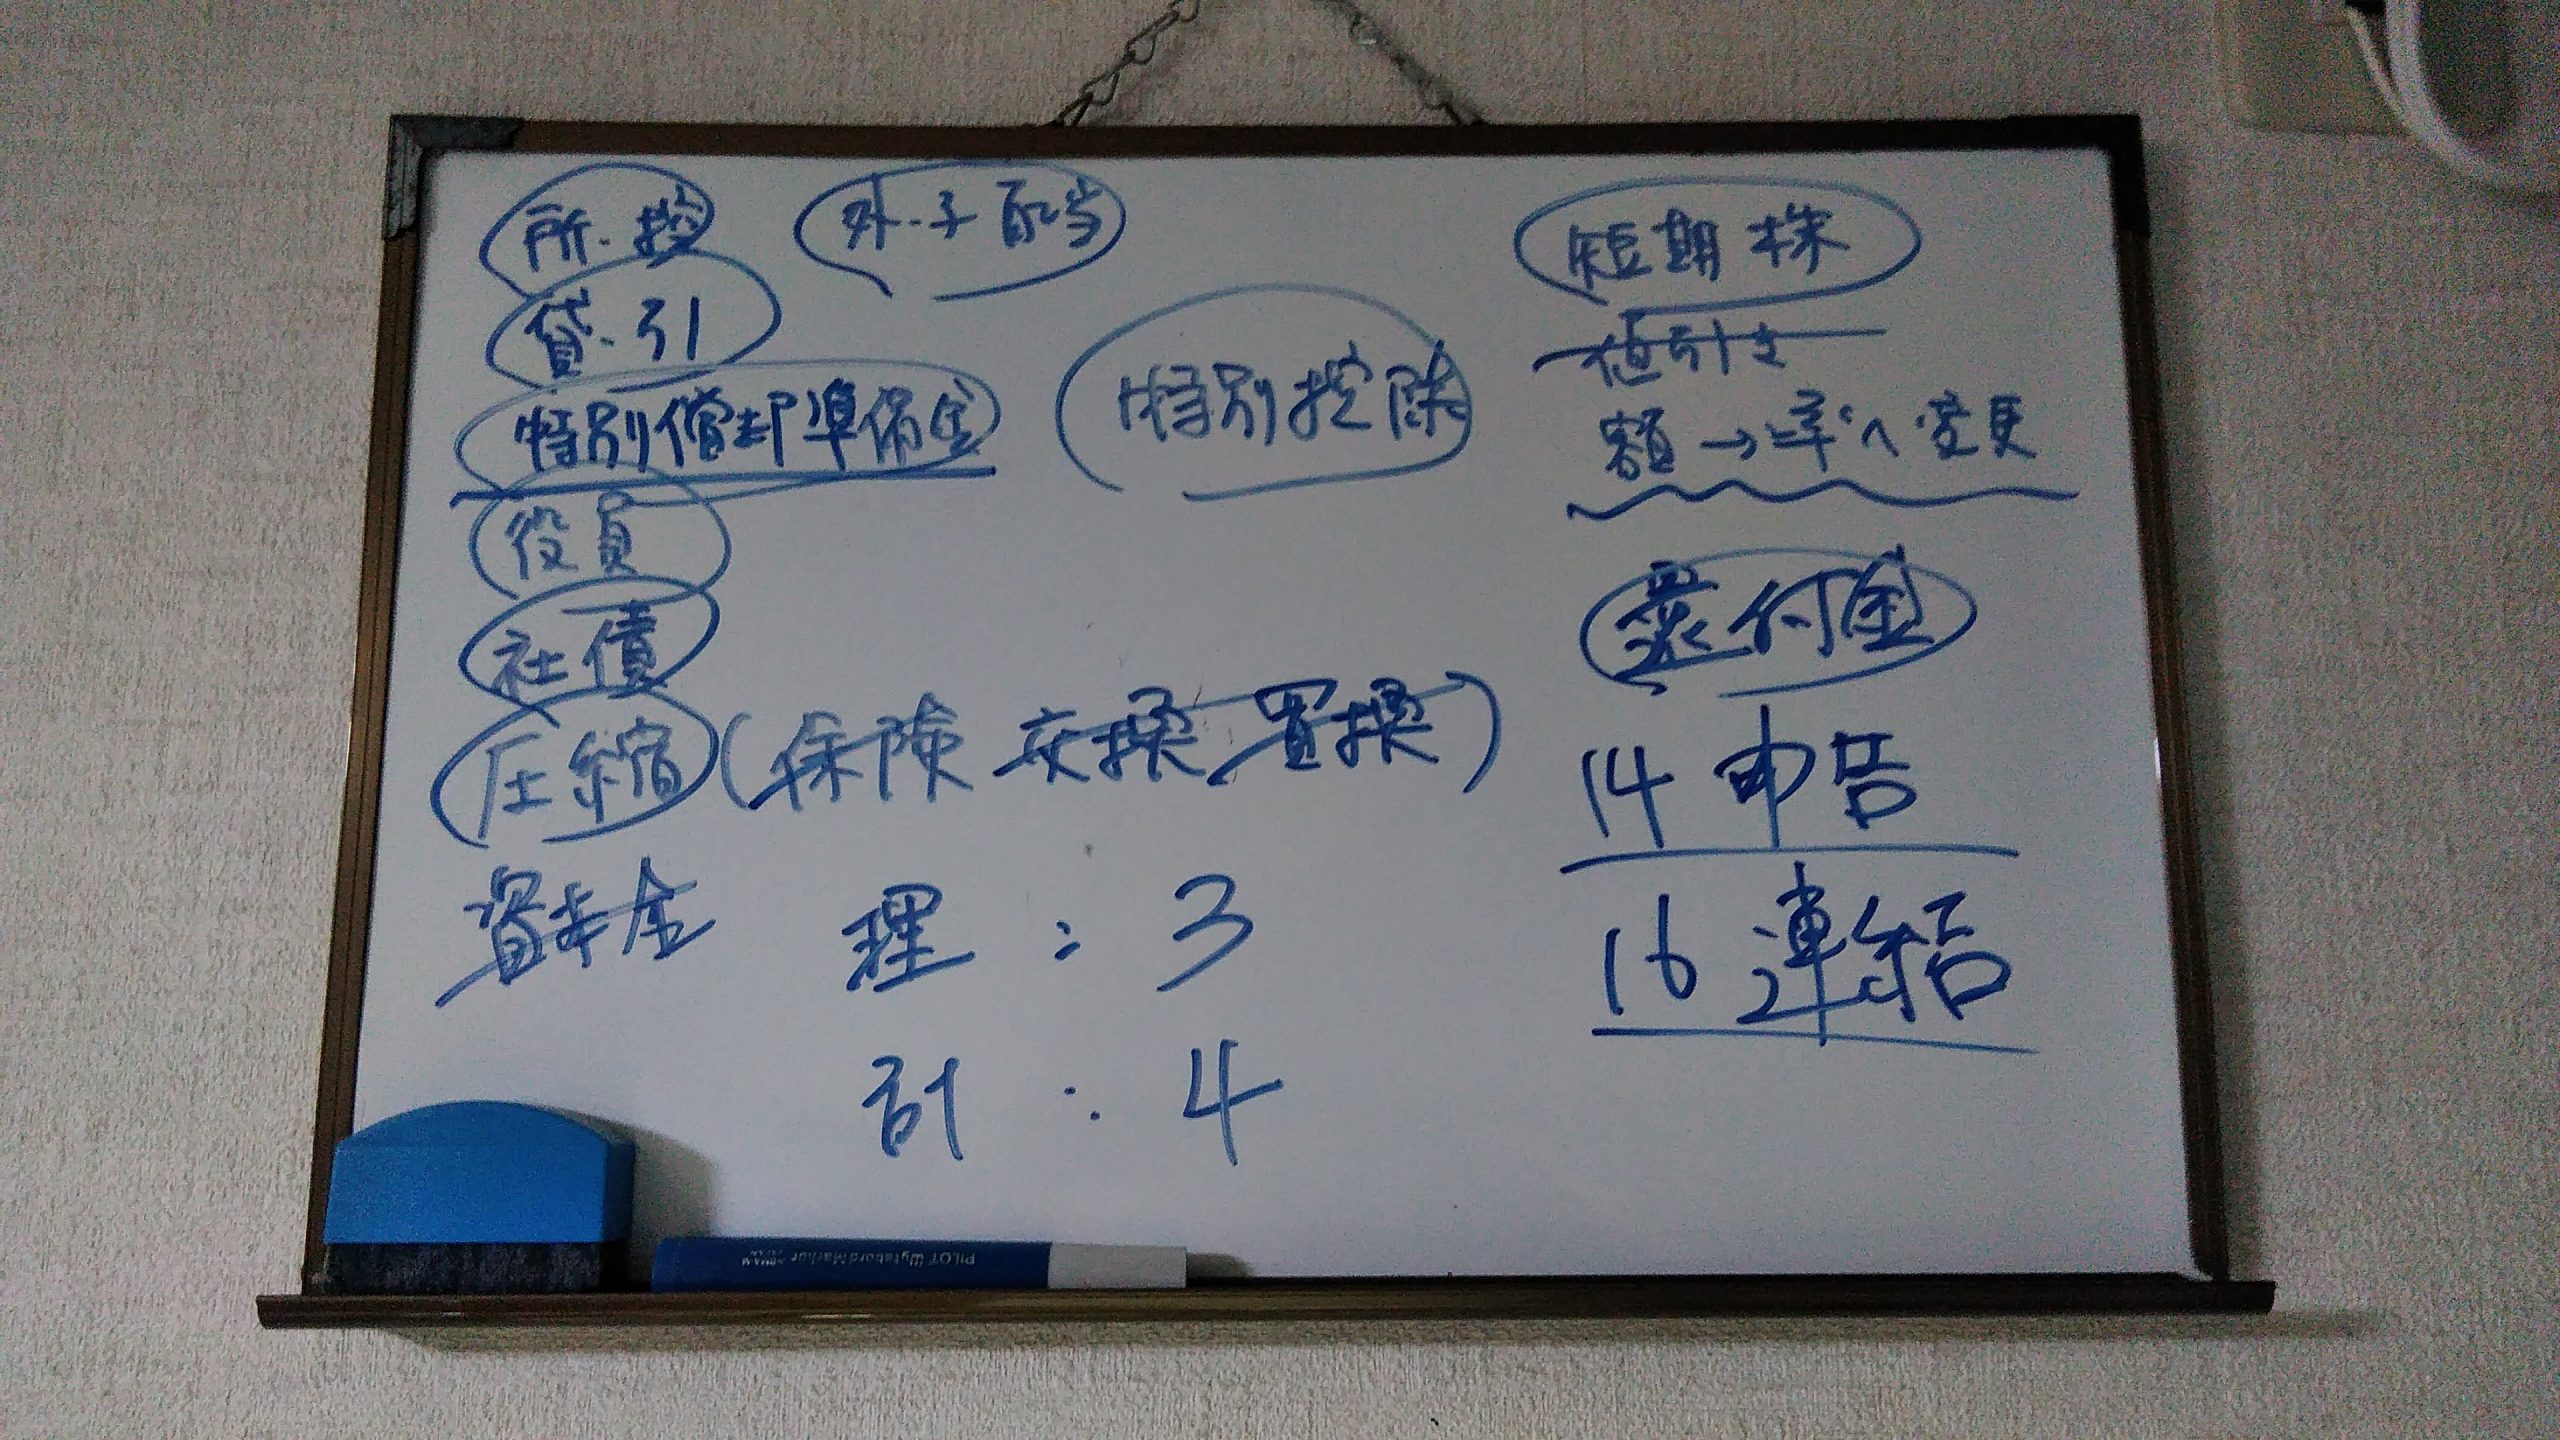 所・控
外・子配当
貸・引
特別償却準備金
特別控除
役員
社債
圧縮(保険 交換 置換)
資本金
理:3
計:4
短期株
値引き
額→率へ変更
還付金
14 申告
16 連結
PILOT WytebordMarker